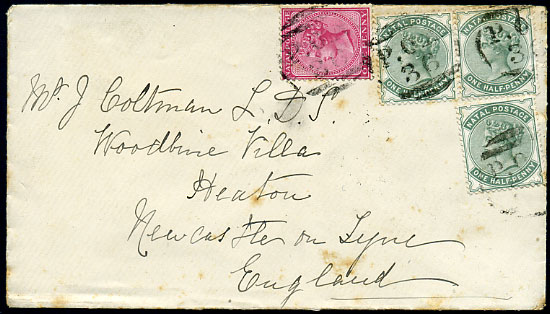 NATAL POSTAGE
ONE HALF-PENNY
NATAL POSTAGE
ONE HALF-PENNY
NATAL POSTAGE
ONE HALF-PENNY
Mr J Coltman L.D.S.
Woodbine Villa
Heaton
Newcastle on Tyne
England